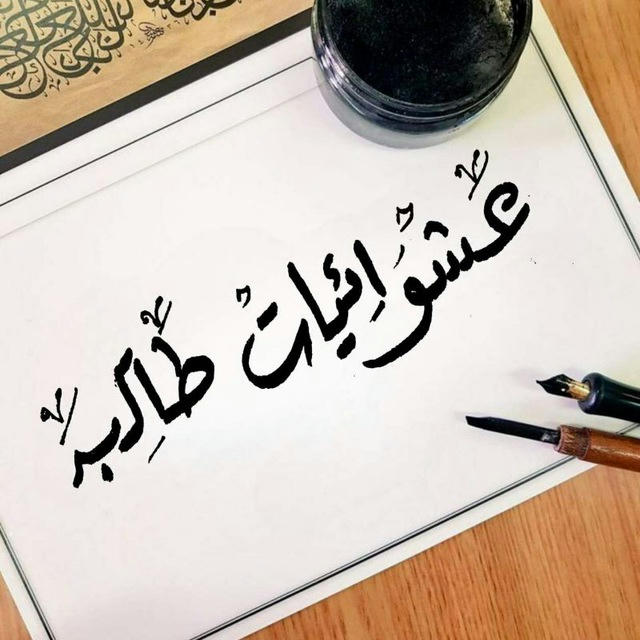 عشوائيات طالبه